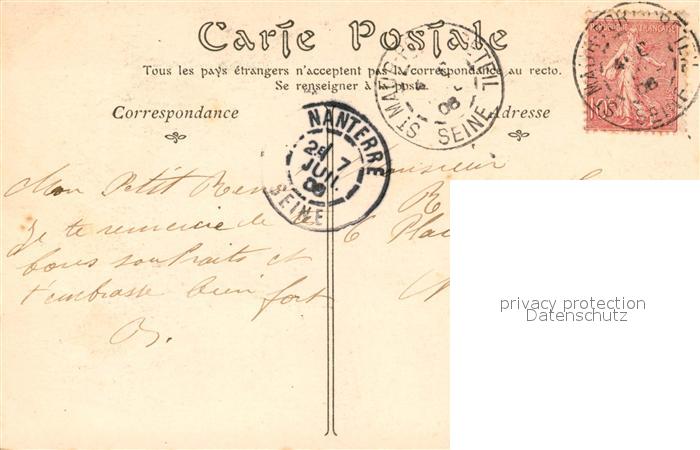 Carte Postale
Tous les pays étrangers n'acceptent pas la correspondance au recto.
Se renseigner à la poste
Correspondance
Adresse
ST MAUR PORT CRETEIL
08
SEINE
NANTERRE
7
JUIL
08
SEINE
Mon Petit René
Je te remercie de tes
bons souhaits et
t'embrasse bien fort
Monsieur
R
6 Plac
privacy protection
Datenschutz